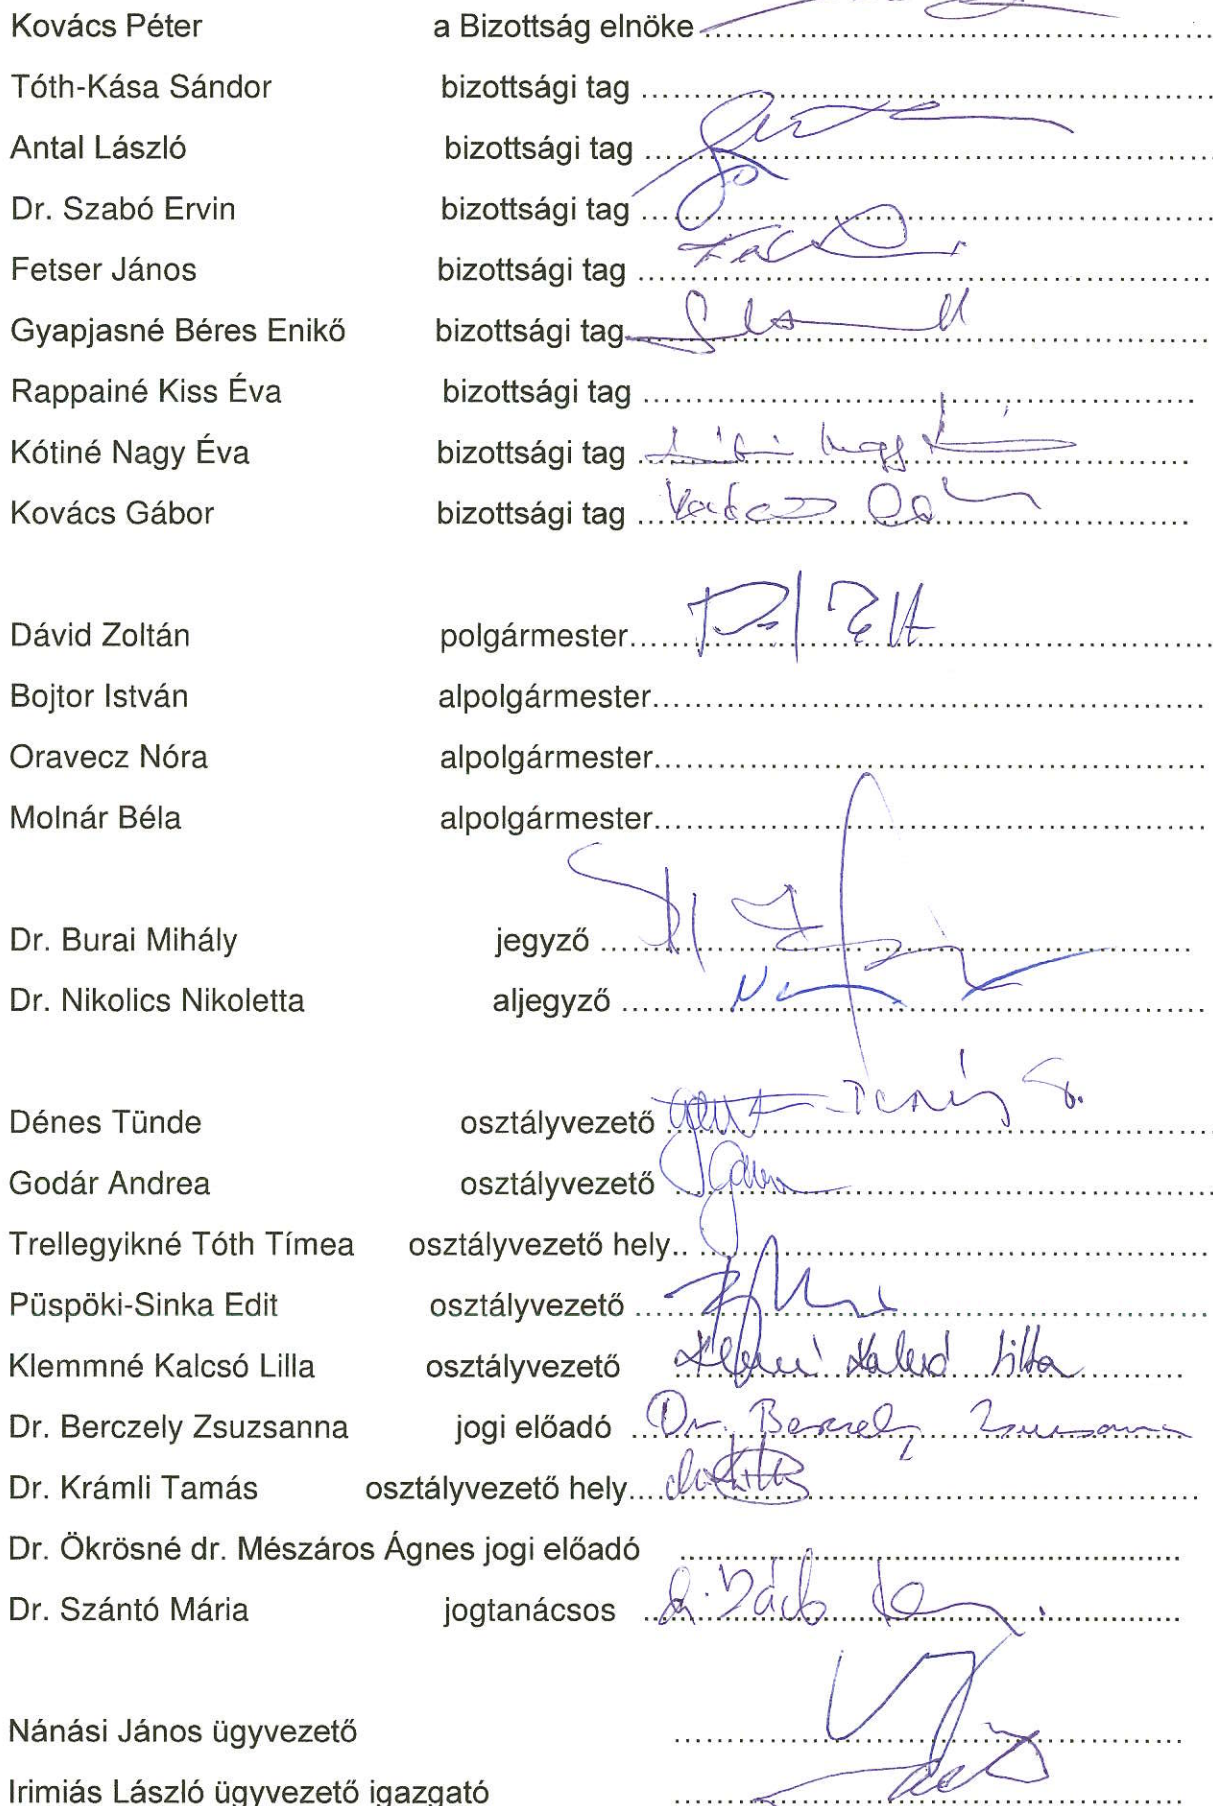 Kovács Péter a Bizottság elnöke
Tóth-Kása Sándor bizottsági tag
Antal László bizottsági tag
Dr. Szabó Ervin bizottsági tag
Fetser János bizottsági tag
Gyapjasné Béres Enikő bizottsági tag
Rappainé Kiss Éva bizottsági tag
Kótiné Nagy Éva bizottsági tag
Kovács Gábor bizottsági tag
Dávid Zoltán polgármester
Bojtor István alpolgármester
Oravecz Nóra alpolgármester
Molnár Béla alpolgármester
Dr. Burai Mihály jegyző
Dr. Nikolics Nikoletta aljegyző
Dénes Tünde osztályvezető
Godár Andrea osztályvezető
Trellegyikné Tóth Tímea osztályvezető hely..
Püspöki-Sinka Edit osztályvezető
Klemmné Kalcsó Lilla osztályvezető
Dr. Berczely Zsuzsanna jogi előadó Dr. Berczely Zsuzsanna
Dr. Krámli Tamás osztályvezető hely...
Dr. Ökrösné dr. Mészáros Ágnes jogi előadó
Dr. Szántó Mária jogtanácsos
Nánási János ügyvezető
Irimiás László ügyvezető igazgató